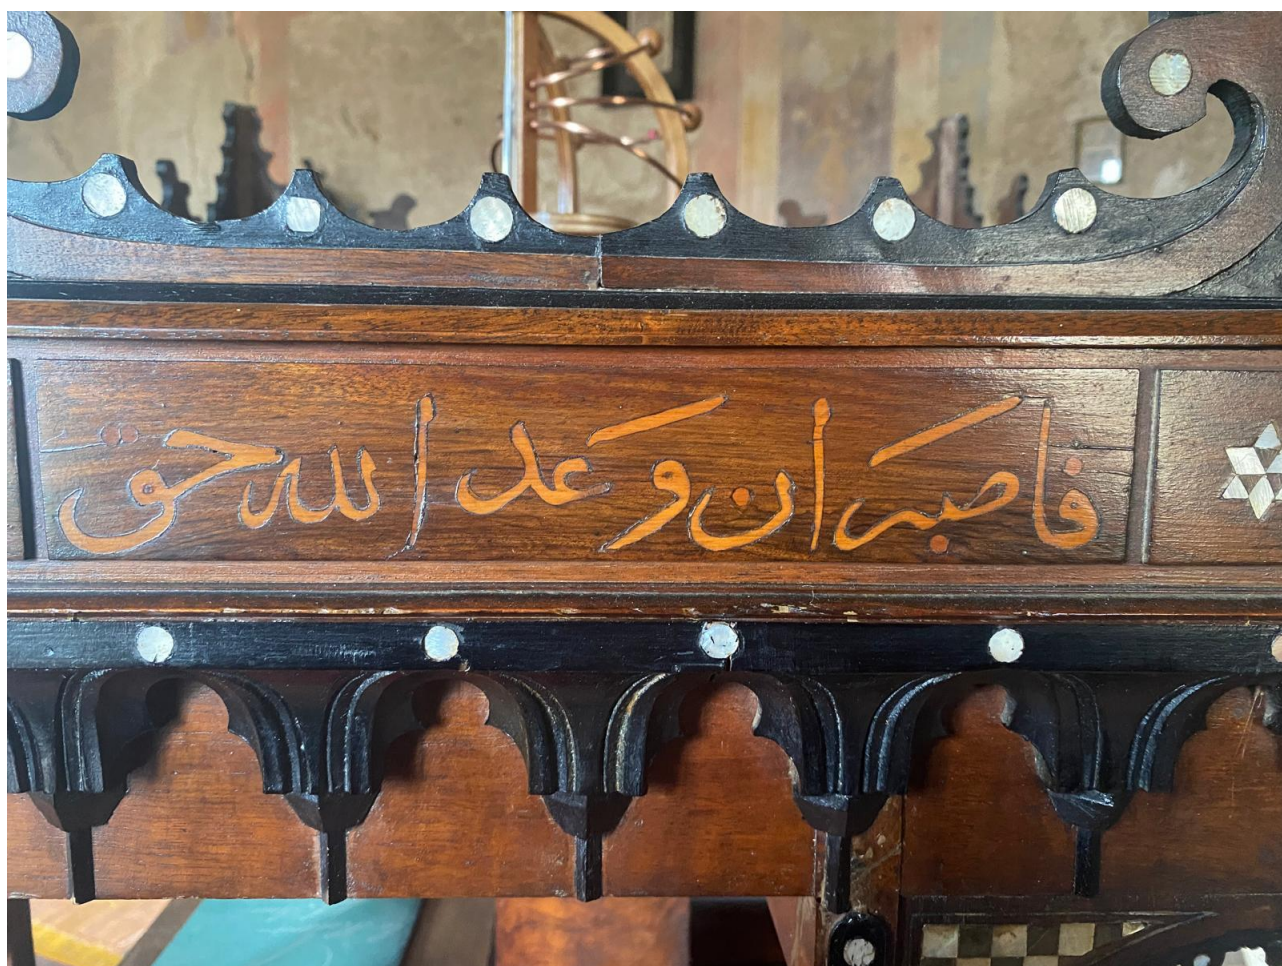 فاصبر ان وعد الله حق